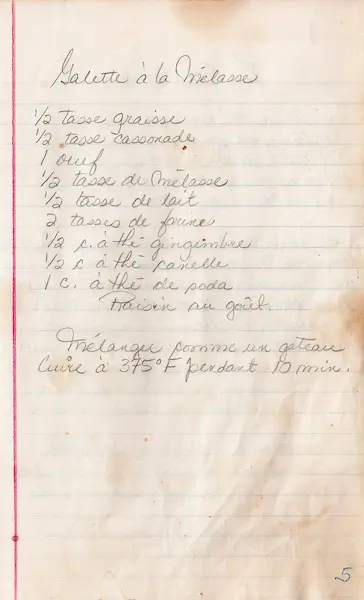 Galette à la Mélasse
1/2 tasse graisse
1/2 tasse cassonade
1 oeuf
1/2 tasse de Mélasse
1/2 tasse de lait
2 tasses de farine
1/2 c. à thé gingembre
1/2 c à thé canelle
1 c. à thé de soda
Raisin au goût.
Mélanger comme un gâteau
Cuire à 375° F pendant 10 min.
5